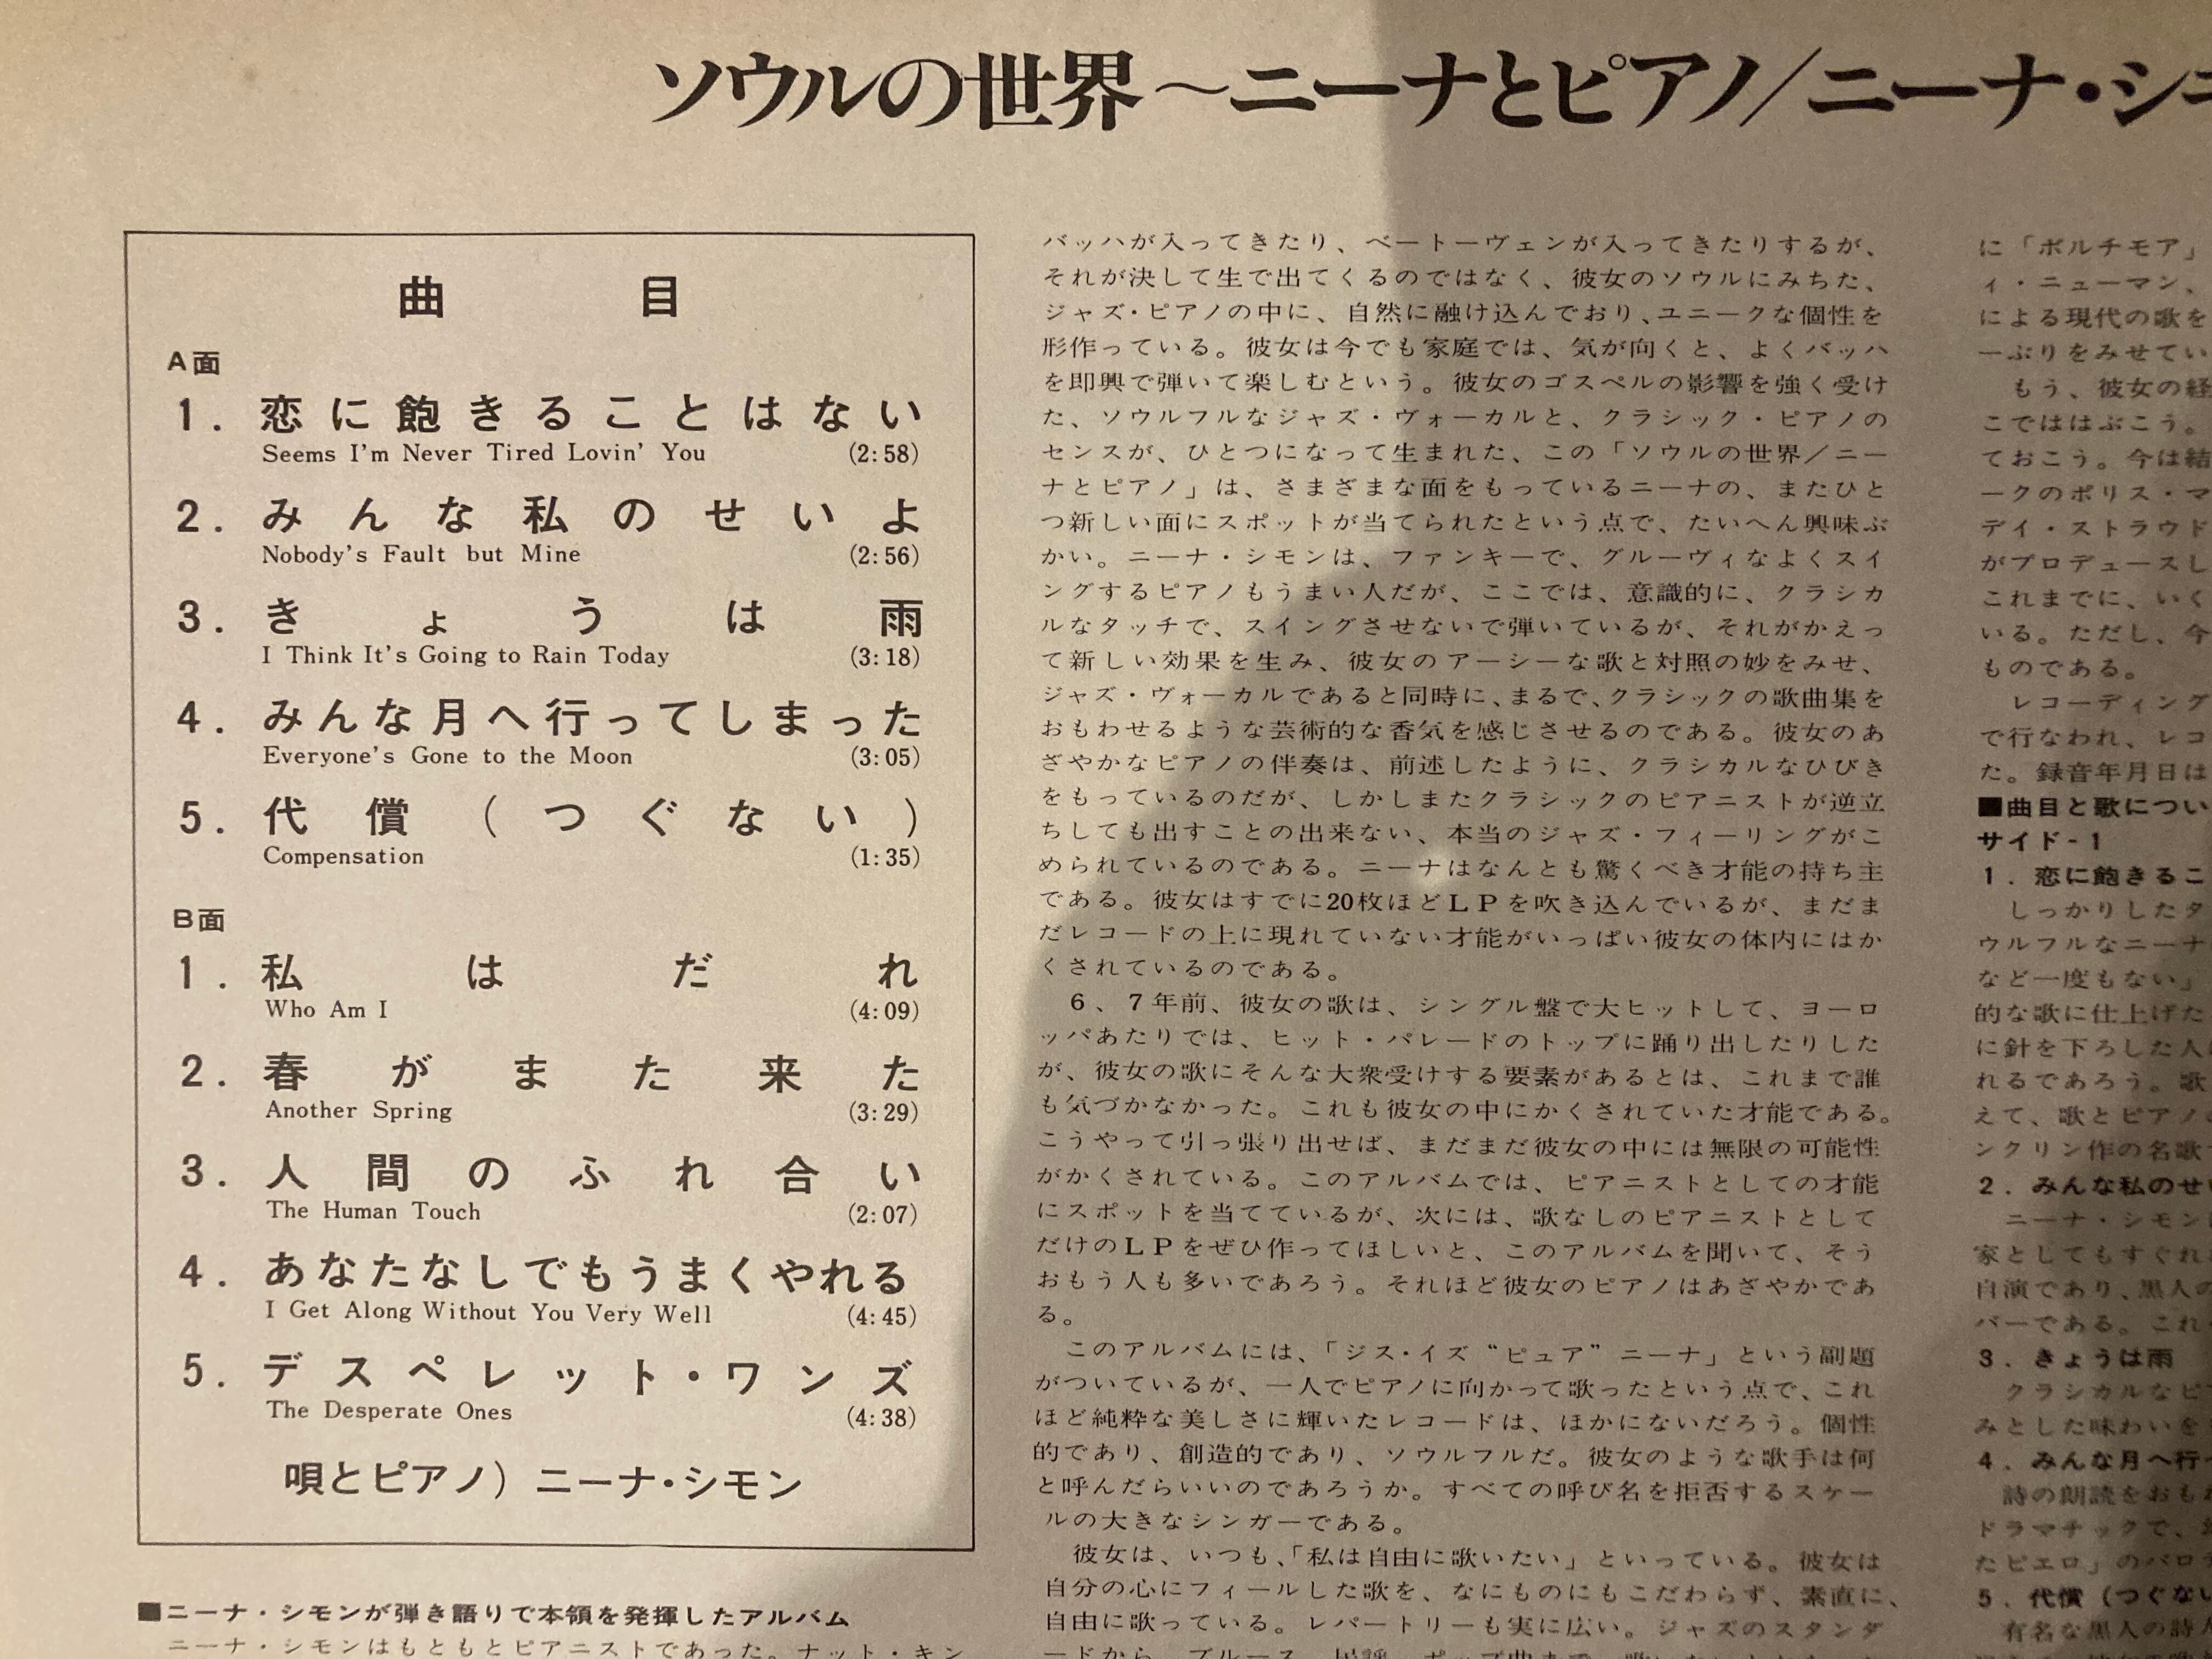 ソウルの世界〜ニーナとピアノ/ニーナ・シモ
曲目
A面
1. 恋に飽きることはない
Seems I'm Never Tired Lovin' You (2:58)
2. みんな私のせいよ
Nobody's Fault but Mine (2:56)
3. きょうは雨
I Think It's Going to Rain Today (3:18)
4. みんな月へ行ってしまった
Everyone's Gone to the Moon (3:05)
5. 代償(つぐない)
Compensation (1:35)
B面
1. 私はだれ
Who Am I (4:09)
2. 春がまた来た
Another Spring (3:29)
3. 人間のふれ合い
The Human Touch (2:07)
4. あなたなしでもうまくやれる
I Get Along Without You Very Well (4:45)
5. デスペレット・ワンズ
The Desperate Ones (4:38)
唄とピアノ) ニーナ・シモン
■ニーナ・シモンが弾き語りで本領を発揮したアルバム
ニーナ・シモンはもともとピアニストであった。ナット・キン
バッハが入ってきたり、ベートーヴェンが入ってきたりするが、
それが決して生で出てくるのではなく、彼女のソウルにみちた、
ジャズ・ピアノの中に、自然に融け込んでおり、ユニークな個性を
形作っている。彼女は今でも家庭では、気が向くと、よくバッハ
を即興で弾いて楽しむという。彼女のゴスペルの影響を強く受け
た、ソウルフルなジャズ・ヴォーカルと、クラシック・ピアノの
センスが、ひとつになって生まれた、この「ソウルの世界/ニー
ナとピアノ」は、さまざまな面をもっているニーナの、またひと
つ新しい面にスポットが当てられたという点で、たいへん興味ぶ
かい。ニーナ・シモンは、ファンキーで、グルーヴィなよくスイ
ングするピアノもうまい人だが、ここでは、意識的に、クラシカ
ルなタッチで、スイングさせないで弾いているが、それがかえっ
て新しい効果を生み、彼女のアーシーな歌と対照の妙をみせ、
ジャズ・ヴォーカルであると同時に、まるで、クラシックの歌曲集を
おもわせるような芸術的な香気を感じさせるのである。彼女のあ
ざやかなピアノの伴奏は、前述したように、クラシカルなひびき
をもっているのだが、しかしまたクラシックのピアニストが逆立
ちしても出すことの出来ない、本当のジャズ・フィーリングがこ
められているのである。ニーナはなんとも驚くべき才能の持ち主
である。彼女はすでに20枚ほどLPを吹き込んでいるが、まだま
だレコードの上に現れていない才能がいっぱい彼女の体内にはか
くされているのである。
6、7年前、彼女の歌は、シングル盤で大ヒットして、ヨーロ
ッパあたりでは、ヒット・パレードのトップに踊り出したりした
が、彼女の歌にそんな大衆受けする要素があるとは、これまで誰
も気づかなかった。これも彼女の中にかくされていた才能である。
こうやって引っ張り出せば、まだまだ彼女の中には無限の可能性
がかくされている。このアルバムでは、ピアニストとしての才能
にスポットを当てているが、次には、歌なしのピアニストとして
だけのLPをぜひ作ってほしいと、このアルバムを聞いて、そう
おもう人も多いであろう。それほど彼女のピアノはあざやかであ
る。
このアルバムには、「ジス・イズ“ピュア”ニーナ」という副題
がついているが、一人でピアノに向かって歌ったという点で、これ
ほど純粋な美しさに輝いたレコードは、ほかにないだろう。個性
的であり、創造的であり、ソウルフルだ。彼女のような歌手は何
と呼んだらいいのであろうか。すべての呼び名を拒否するスケー
ルの大きなシンガーである。
彼女は、いつも、「私は自由に歌いたい」といっている。彼女は
自分の心にフィールした歌を、なにものにもこだわらず、素直に、
自由に歌っている。レパートリーも実に広い。ジャズのスタンダ
に「ボルチモア」
ィ・ニューマン、
による現代の歌を
ーぶりをみせてい
もう、彼女の経
こでははぶこう。
ておこう。今は結
ークのボリス・マ
デイ・ストラウド
がプロデュースし
これまでに、いく
いる。ただし、今
ものである。
レコーディング
で行なわれ、レコ
た。録音年月日は
■曲目と歌につい
サイド-1
1. 恋に飽きるこ
しっかりしたタ
ウルフルなニーナ
など一度もない」
的な歌に仕上げた
に針を下ろした人
れるであろう。歌
えて、歌とピアノ
ンクリン作の名歌
2. みんな私のせい
ニーナ・シモン
家としてもすぐれ
自演であり、黒人の
バーである。これ
3. きょうは雨
クラシカルなピ
みとした味わいを
4. みんな月へ行
詩の朗読をおも
ドラマチックで、
たピエロ」のバロ
5. 代償(つぐない
有名な黒人の詩人